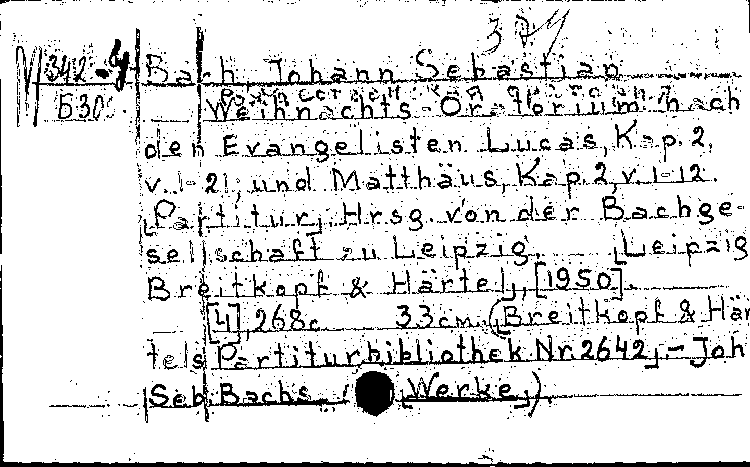 374
М 342-4 Bach, Johann Sebastian
Б30 Weihnachts-Oratorium nach
den Evangelisten Lucas, Kap. 2,
v. 1-21, und Matthäus, Kap. 2, v. 1-12.
[Partitur] Hrsg. von der Bachge-
sellschaft zu Leipzig. [Leipzig
Breitkopf & Härtel], [1950].
[4], 268 с. 33 см. (Breitkopf & Här
tels Partiturbibliothek Nr. 2642]. - Joh
Seb. Bachs [Werke]).